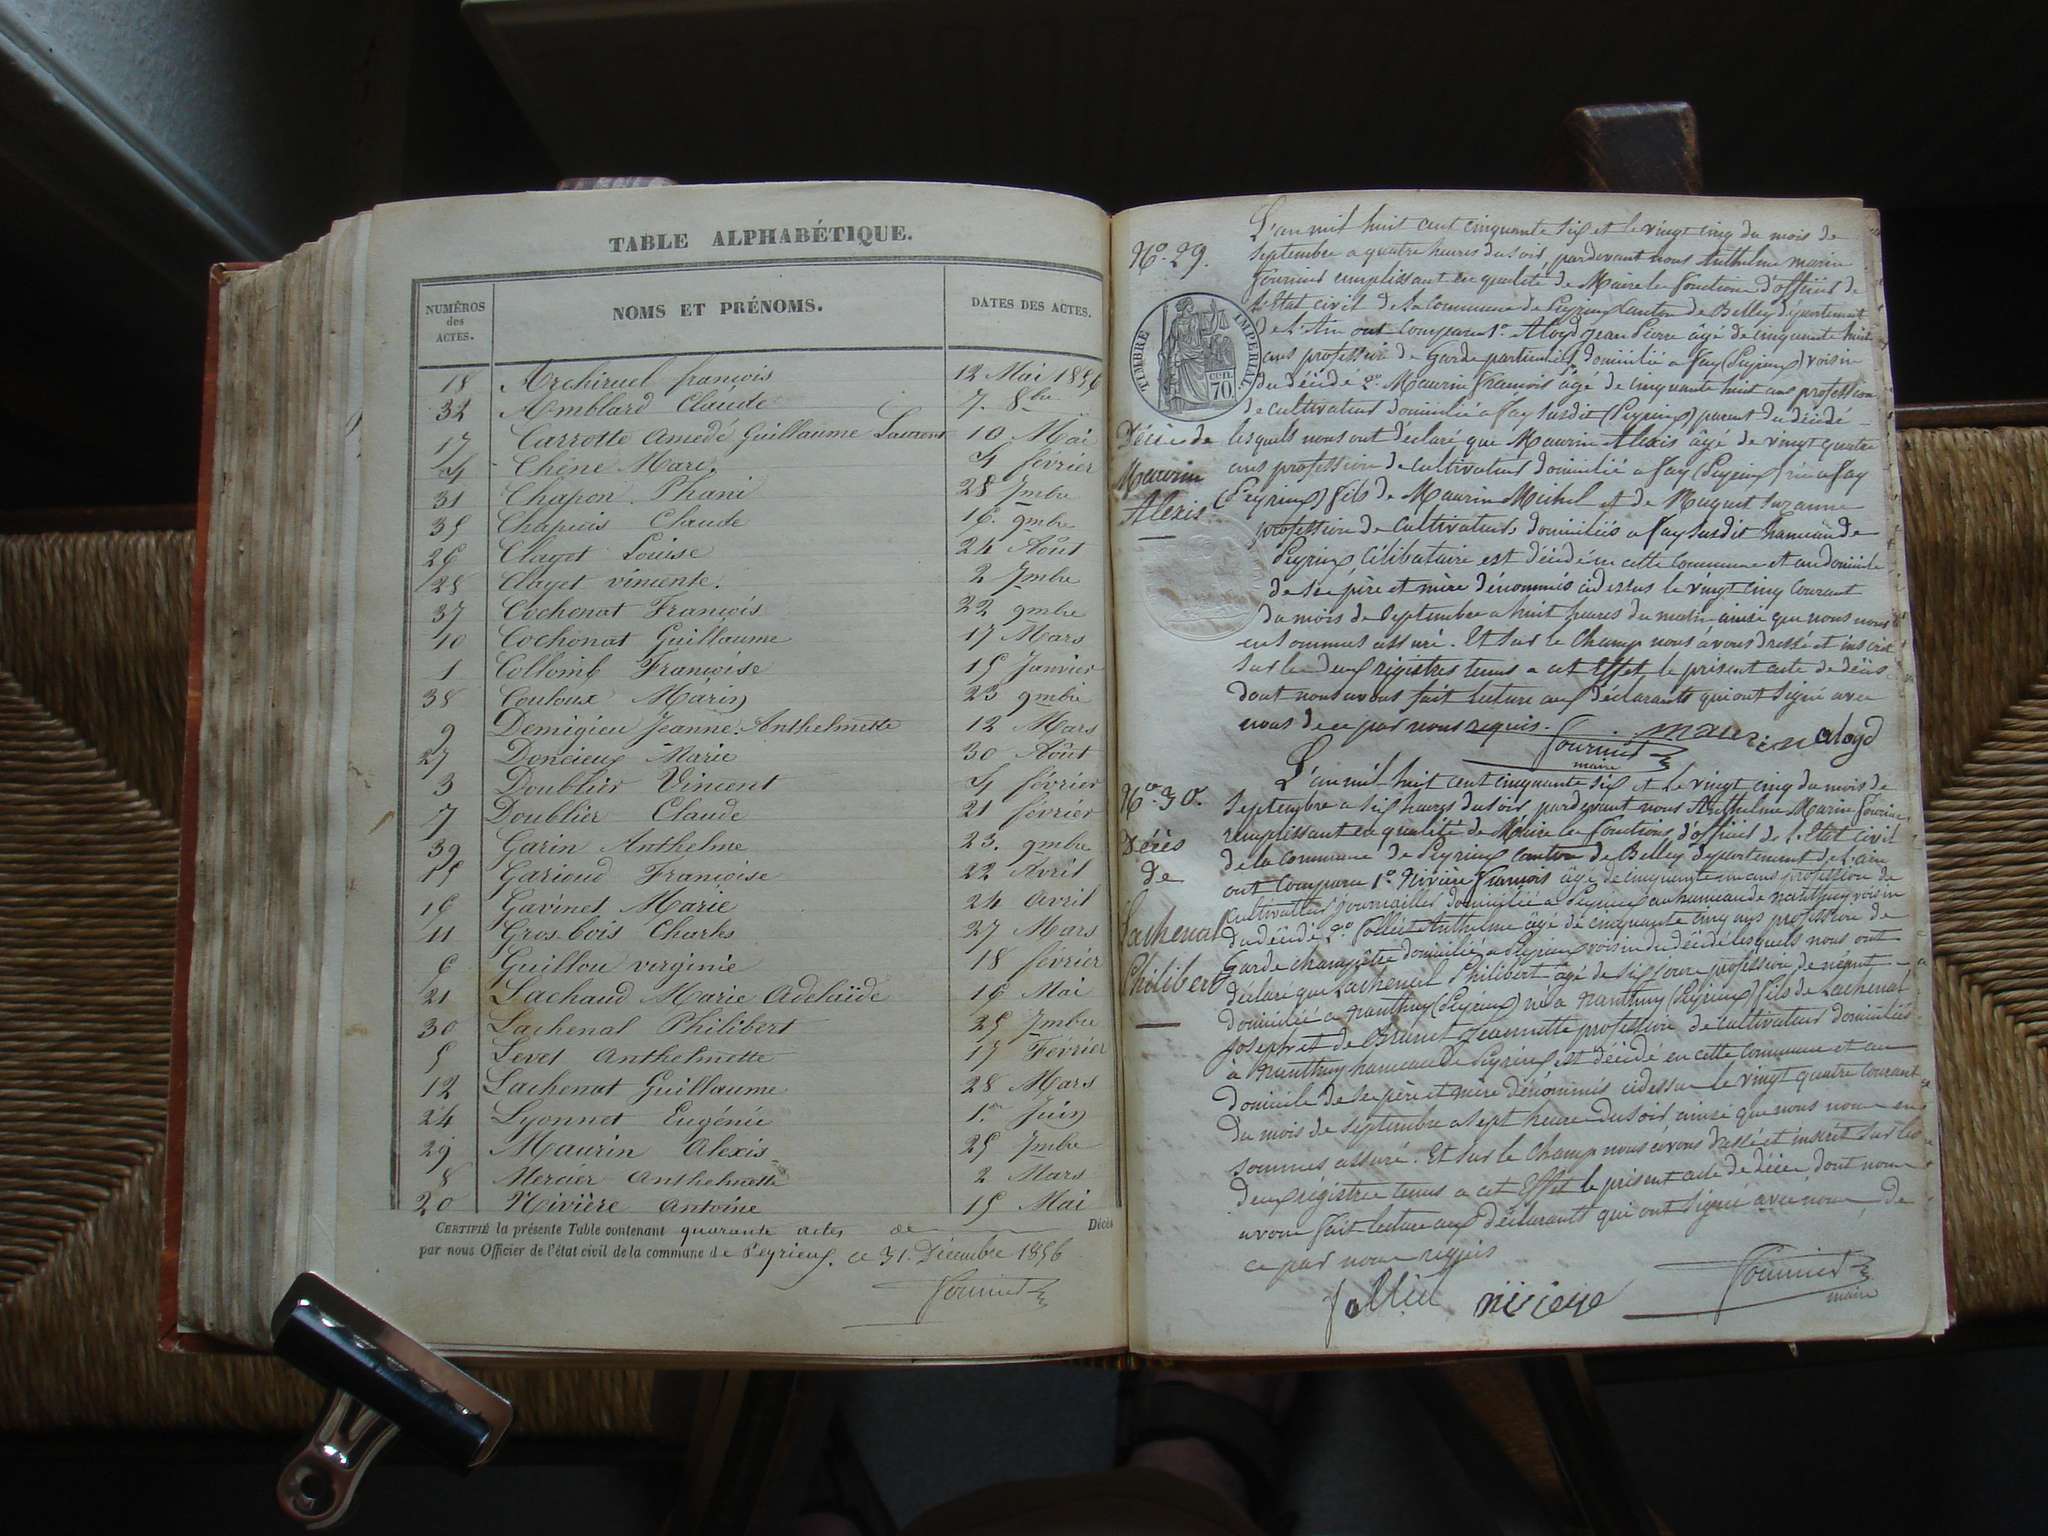 TABLE ALPHABÉTIQUE.
NUMÉROS des ACTES. NOMS ET PRÉNOMS. DATES DES ACTES.
18 Archiruel françois 12 Mai 1856
32 Amblard Claude 7. 8bre
17 Carrotte Amedé Guillaume Laurent 10 Mai
4 Chêne Marc. 4 février
31 Chapon Phani 28 7mbre
35 Chapuis Claude 16. 9mbre
26 Clayet Louise 24 Août
28 Clayet vincente. 2 7mbre
37 Cochonat François 22 9mbre
10 Cochonat Guillaume 17 Mars
1 Collomb Françoise 15 Janvier
38 Couloux Marin 23 9mbre
9 Demigieu Jeanne Anthelmette 12 Mars
27 Doncieux Marie 30 Août
3 Doublier Vincent 4 février
7 Doublier Claude 21 février
39 Garin Anthelme 23. 9mbre
15 Garioud Françoise 22 Avril
16 Gavinet Marie 24 avril
11 Gros bois Charles 27 Mars
6 Guillou virginie 18 février
21 Lachaud Marie Adelaïde 16 Mai
30 Lachenal Philibert 25 7mbre
5 Levet Anthelmette 17 Février
12 Lachenat Guillaume 28 Mars
24 Lyonnet Eugénie 1.er Juin
29 Maurin Alexis 25 7mbre
8 Mercier Anthelmette 2 Mars
20 Nivière Antoine 15 Mai
CERTIFIÉ la présente Table contenant quarante actes de Décès
par nous Officier de l'état civil de la commune de Peyrieux. ce 31. Décembre 1856
Fournier
No. 29.
TIMBRE IMPERIAL
70 CEN.
Décès de
Maurin
Alexis
L'an mil huit cent cinquante six et le vingt cinq du mois de
septembre a quatre heures du soir, pardevant nous Anthelme marin
Fournier remplissant en qualité de Maire les fonctions d'officier de
l'Etat civil de la commune de Peyrieux canton de Belley département
de l'Ain ont comparu 1o. Aloyd Jean Pierre âgé de cinquante huit
ans profession de Garde particulier domicilié a fay (Peyrieux) voisin
du décédé 2o. Maurin François âgé de cinquante huit ans profession
de cultivateur domicilié a fay susdit (Peyrieux) parent du décédé
lesquels nous ont déclaré que Maurin Alexis âgé de vingt quatre
ans profession de cultivateur domicilié a fay (Peyrieux) né a fay
(Peyrieux) fils de Maurin Michel et de Muguet Suzanne
profession de cultivateurs domiciliés a fay susdit hameau de
Peyrieux Célibataire est décédé en cette commune et au domicile
de ses père et mère dénommés cidessus le vingt cinq courant
du mois de septembre a huit heures du matin ainsi que nous nous
en sommes assuré. Et sur le champ nous avons dressé et inscrit
sur les deux registres tenus a cet effet le présent acte de décès
dont nous avons fait lecture aux déclarants qui ont signé avec
nous de ce par nous requis.
maurin aloyd
Fournier
maire
No. 30.
Décès
de
Lachenal
Philibert
L'an mil huit cent cinquante six et le vingt cinq du mois de
septembre a six heures du soir pardevant nous Anthelme Marin Fournier
remplissant en qualité de Maire les fonctions d'officier de l'Etat civil
de la commune de Peyrieux canton de Belley département de l'ain
ont comparu 1o. Nivière François âgé de cinquante un ans profession de
cultivateur journalier domicilié a Peyrieux au hameau de nanthuy voisin
du décédé 2o. Polliet Anthelme âgé de cinquante cinq ans profession de
Garde champêtre domicilié a Peyrieux voisin du décédé lesquels nous ont
déclaré que Lachenal Philibert âgé de six jours profession de néant
domicilié a nanthuy (Peyrieux) né a nanthuy (Peyrieux) fils de Lachenal
Joseph et de Brunet Jeannette profession de cultivateurs domiciliés
a nanthuy hameau de Peyrieux est décédé en cette commune et au
domicile de ses père et mère dénommés cidessus le vingt quatre courant
du mois de septembre a sept heures du soir, ainsi que nous nous en
sommes assuré. Et sur le champ nous avons dressé et inscrit sur les
deux régistres tenus a cet effet le présent acte de décès dont nous
avons fait lecture aux déclarants qui ont signé avec nous de
ce par nous requis
Polliet niviere Fournier
maire